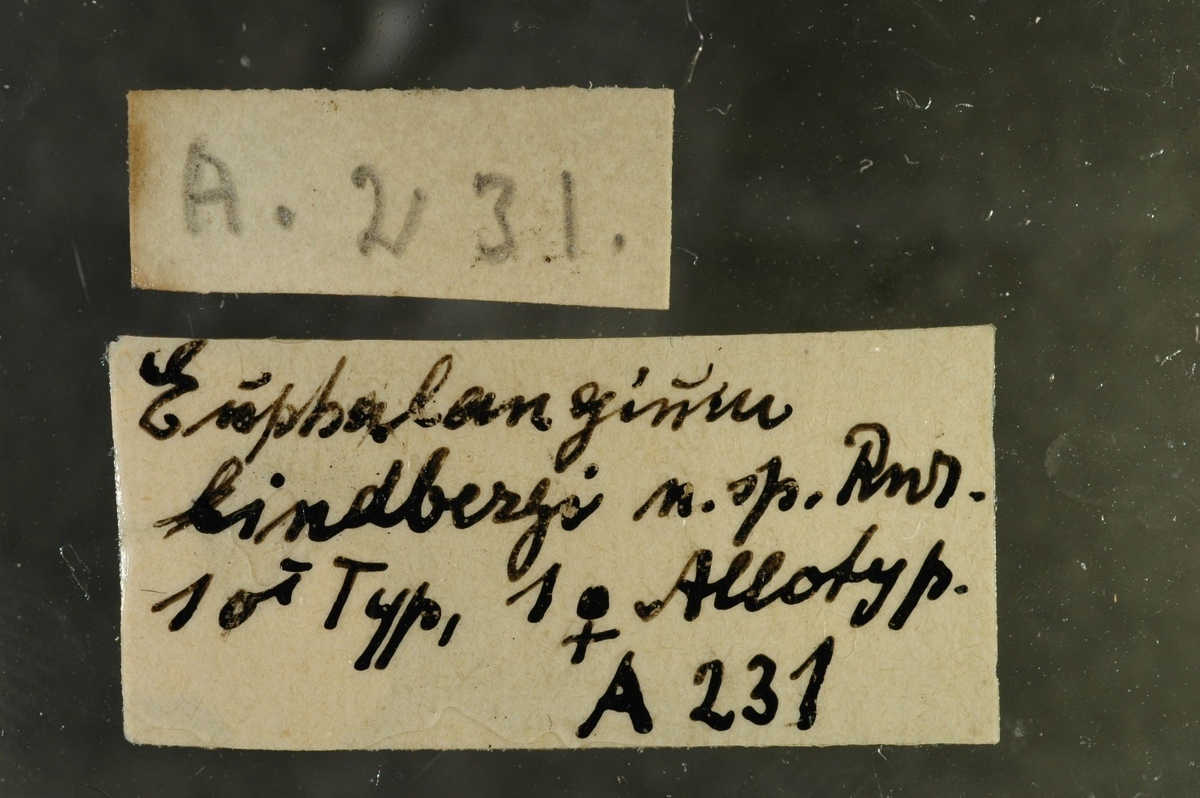 A. 231.
Euphalangium
lindbergi n. sp. Rwr.
1 ♂ Typ, 1 ♀ Allotyp.
A 231